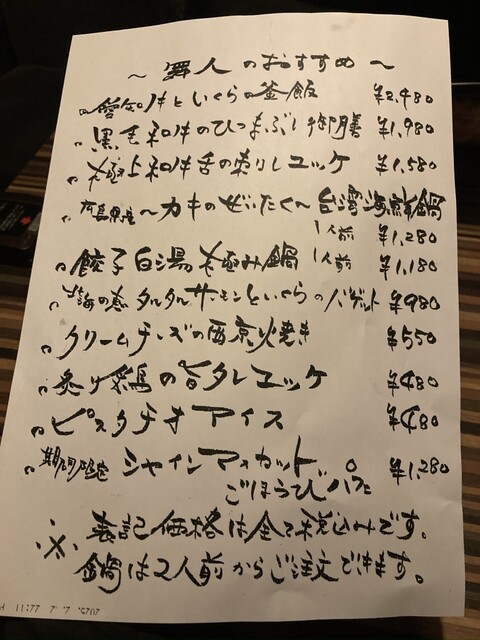 ~舞人のおすすめ~
愛知牛といくらの釜飯 ¥2,480
黒毛和牛のひつまぶし御膳 ¥1,980
極上和牛舌の炙りしユッケ ¥1,580
広島県産~カキのぜいたく~台湾海鮮鍋
1人前 ¥1,280
餃子白湯極み鍋 1人前 ¥1,180
北海の恵 タルタルサーモンといくらのバゲット ¥980
クリームチーズの西京火焼き ¥550
炙り鶏の旨タレユッケ ¥480
ピスタチオアイス ¥480
期間限定 シャインマスカット ¥1,280
ごほうびパフェ
※表記価格は全て税込みです。
鍋は2人前からご注文できます。